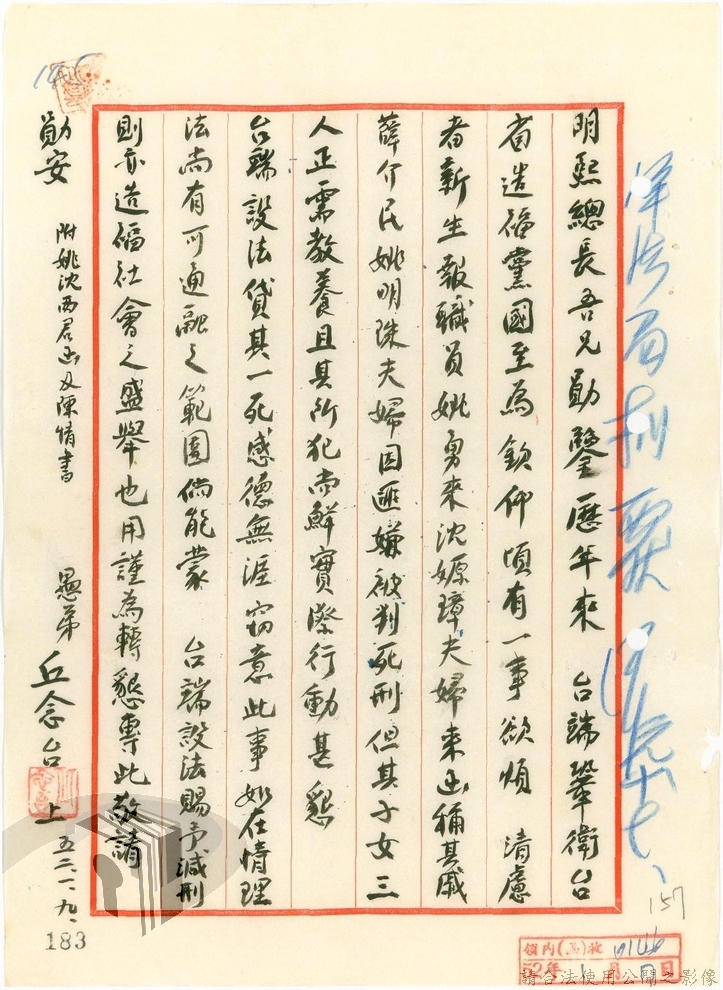 明熙總長吾兄勛鑒歷年來　台端鞏衛台
省造福黨國至為欽仰頃有一事欲煩　清慮
者新生報職員姚勇來沈嫄璋夫婦來函稱其戚
薛介民姚明珠夫婦因匪嫌被判死刑但其子女三
人正需教養且其所犯尚鮮實際行動甚懇
台端設法貸其一死感德無涯竊意此事如在情理
法尚有可通融之範圍倘能蒙　台端設法賜予減刑
則亦造福社會之盛舉也用謹為轉懇專此敬請
勛安
附姚沈两君函及陳情書
愚弟　丘念台　上　五二、一、九、
183
157
領內(馬)收
52年1月　日
請合法使用公開之影像